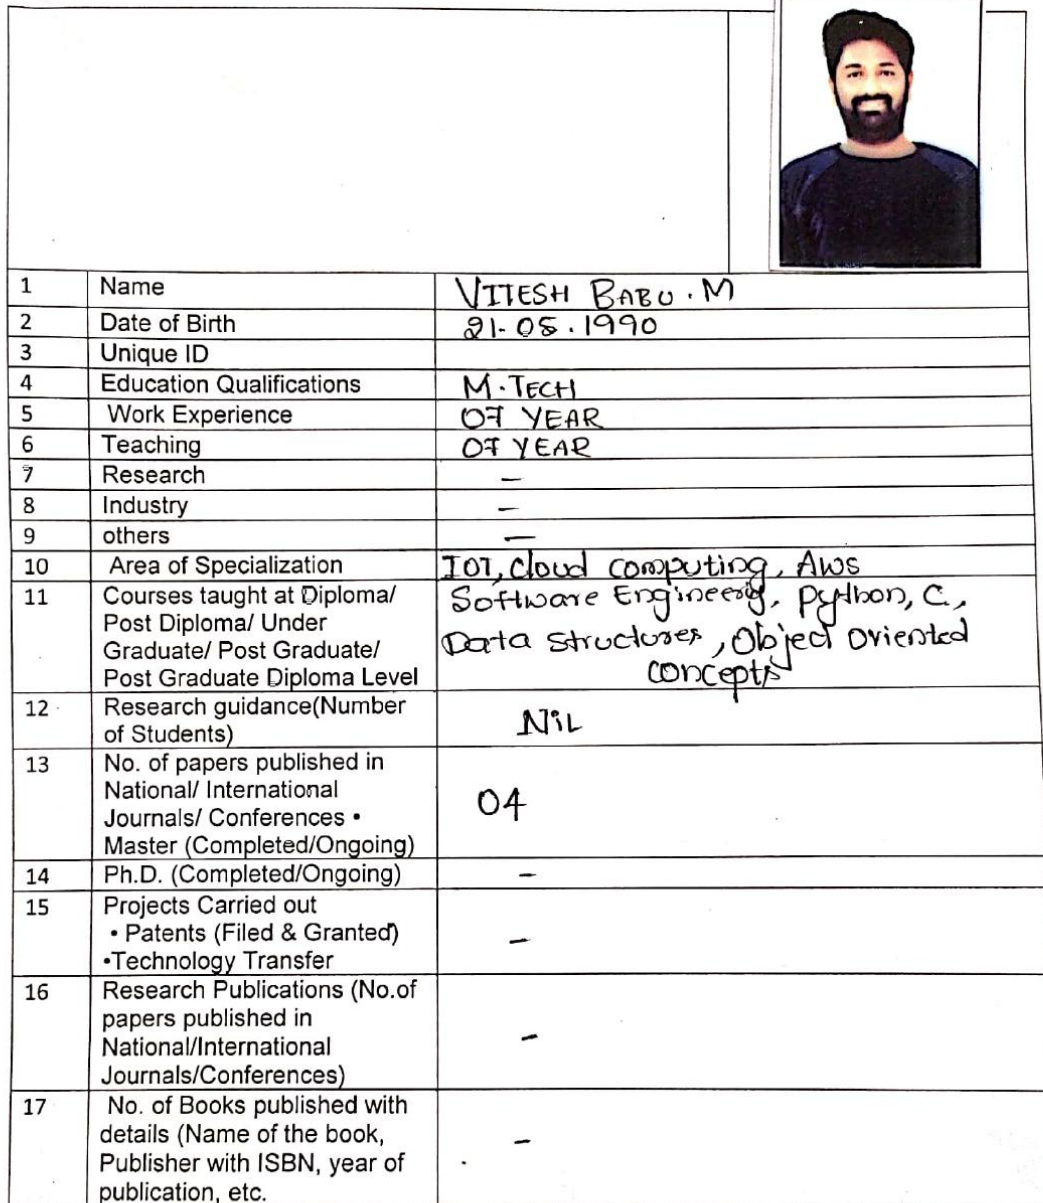 1 Name VITESH BABU . M
2 Date of Birth 21-05.1990
3 Unique ID
4 Education Qualifications M.TECH
5 Work Experience 07 YEAR
6 Teaching 07 YEAR
7 Research –
8 Industry –
9 others —
10 Area of Specialization IOT, cloud computing, AWS
11 Courses taught at Diploma/ Software Engineerig, python, C,
Post Diploma/ Under
Graduate/ Post Graduate/ Data structures, Object oriented
Post Graduate Diploma Level concepts
12 Research guidance(Number NiL
of Students)
13 No. of papers published in
National/ International
Journals/ Conferences • 04
Master (Completed/Ongoing)
14 Ph.D. (Completed/Ongoing) –
15 Projects Carried out
• Patents (Filed & Granted) –
•Technology Transfer
16 Research Publications (No.of
papers published in
National/International –
Journals/Conferences)
17 No. of Books published with
details (Name of the book, –
Publisher with ISBN, year of
publication, etc.